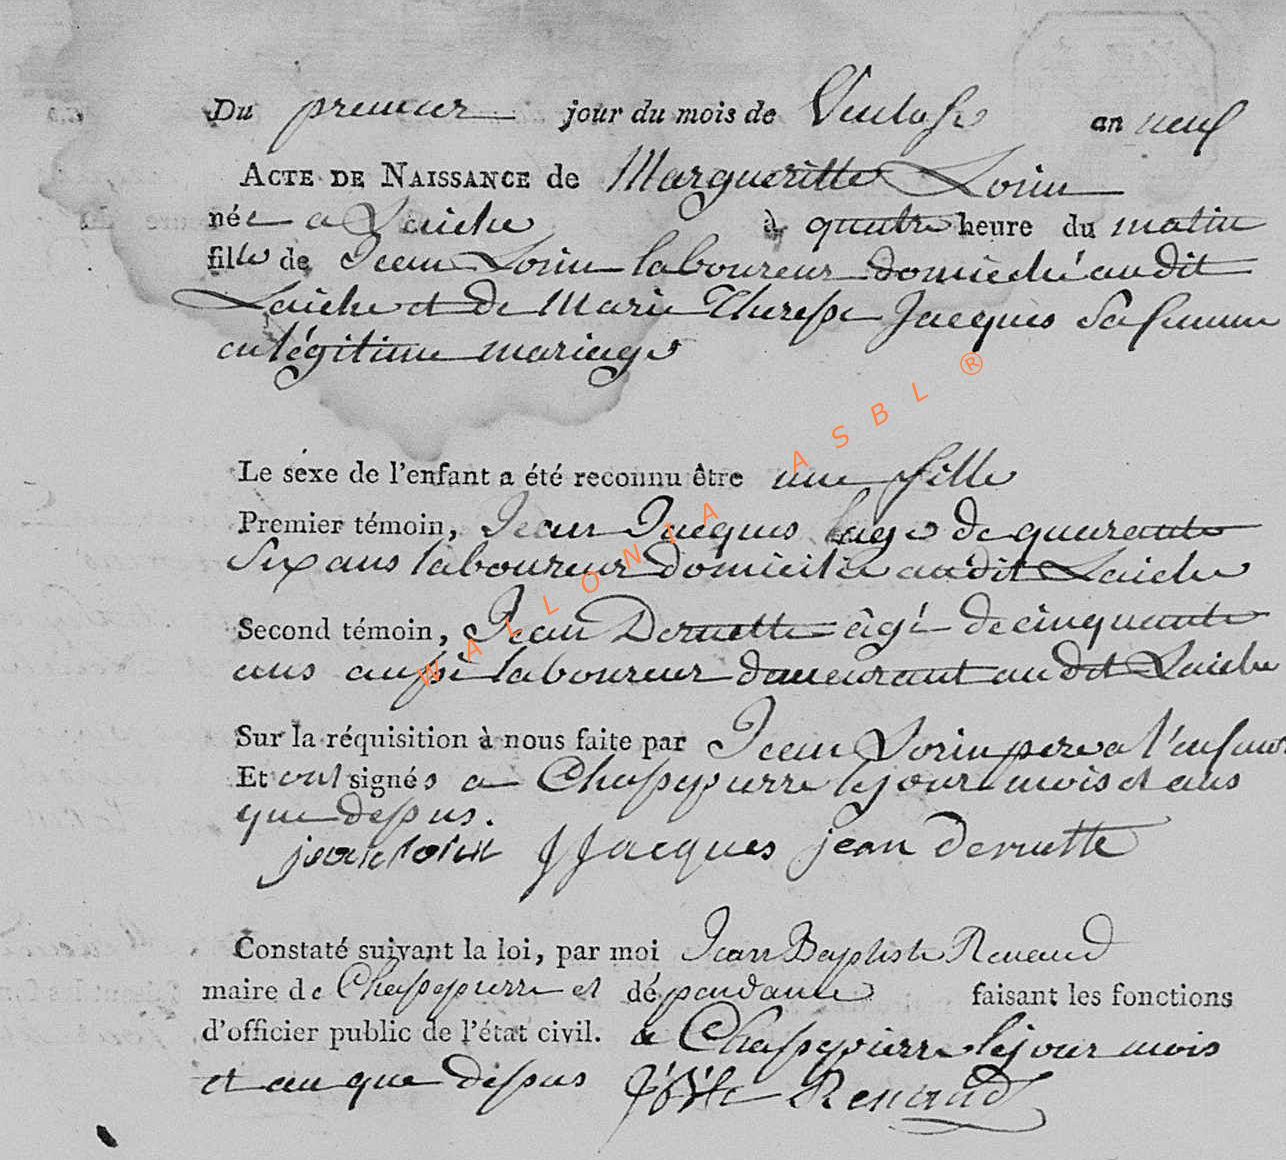 Du premier jour du mois de Ventose an neuf
ACTE DE NAISSANCE de Margueritte Lorin
née a Laiche à quatre heure du matin
fille de Jean Lorin laboureur domicilié audit
Laiche et de Marie Therese Jacques Sa femme
en légitime mariage
Le sexe de l'enfant a été reconnu être une fille
Premier témoin, Jean Jacques age de quarante
Six ans laboureur domicilié audit Laiche
Second témoin, Jean Dernette âgé de cinquante
ans aussi laboureur demeurant au dit Laiche
Sur la réquisition à nous faite par Jean Lorin pere a l'enfant
Et ont signés a Chassepierre le jour mois et ans
que dessus.
jean lorin JJacques jean Dernette
Constaté suivant la loi, par moi Jean Baptiste Renaud
maire de Chassepierre et dépendance faisant les fonctions
d'officier public de l'état civil. a Chassepierre le jour mois
et an que dessus J: B: te Renaud
WALLONIA ASBL ®